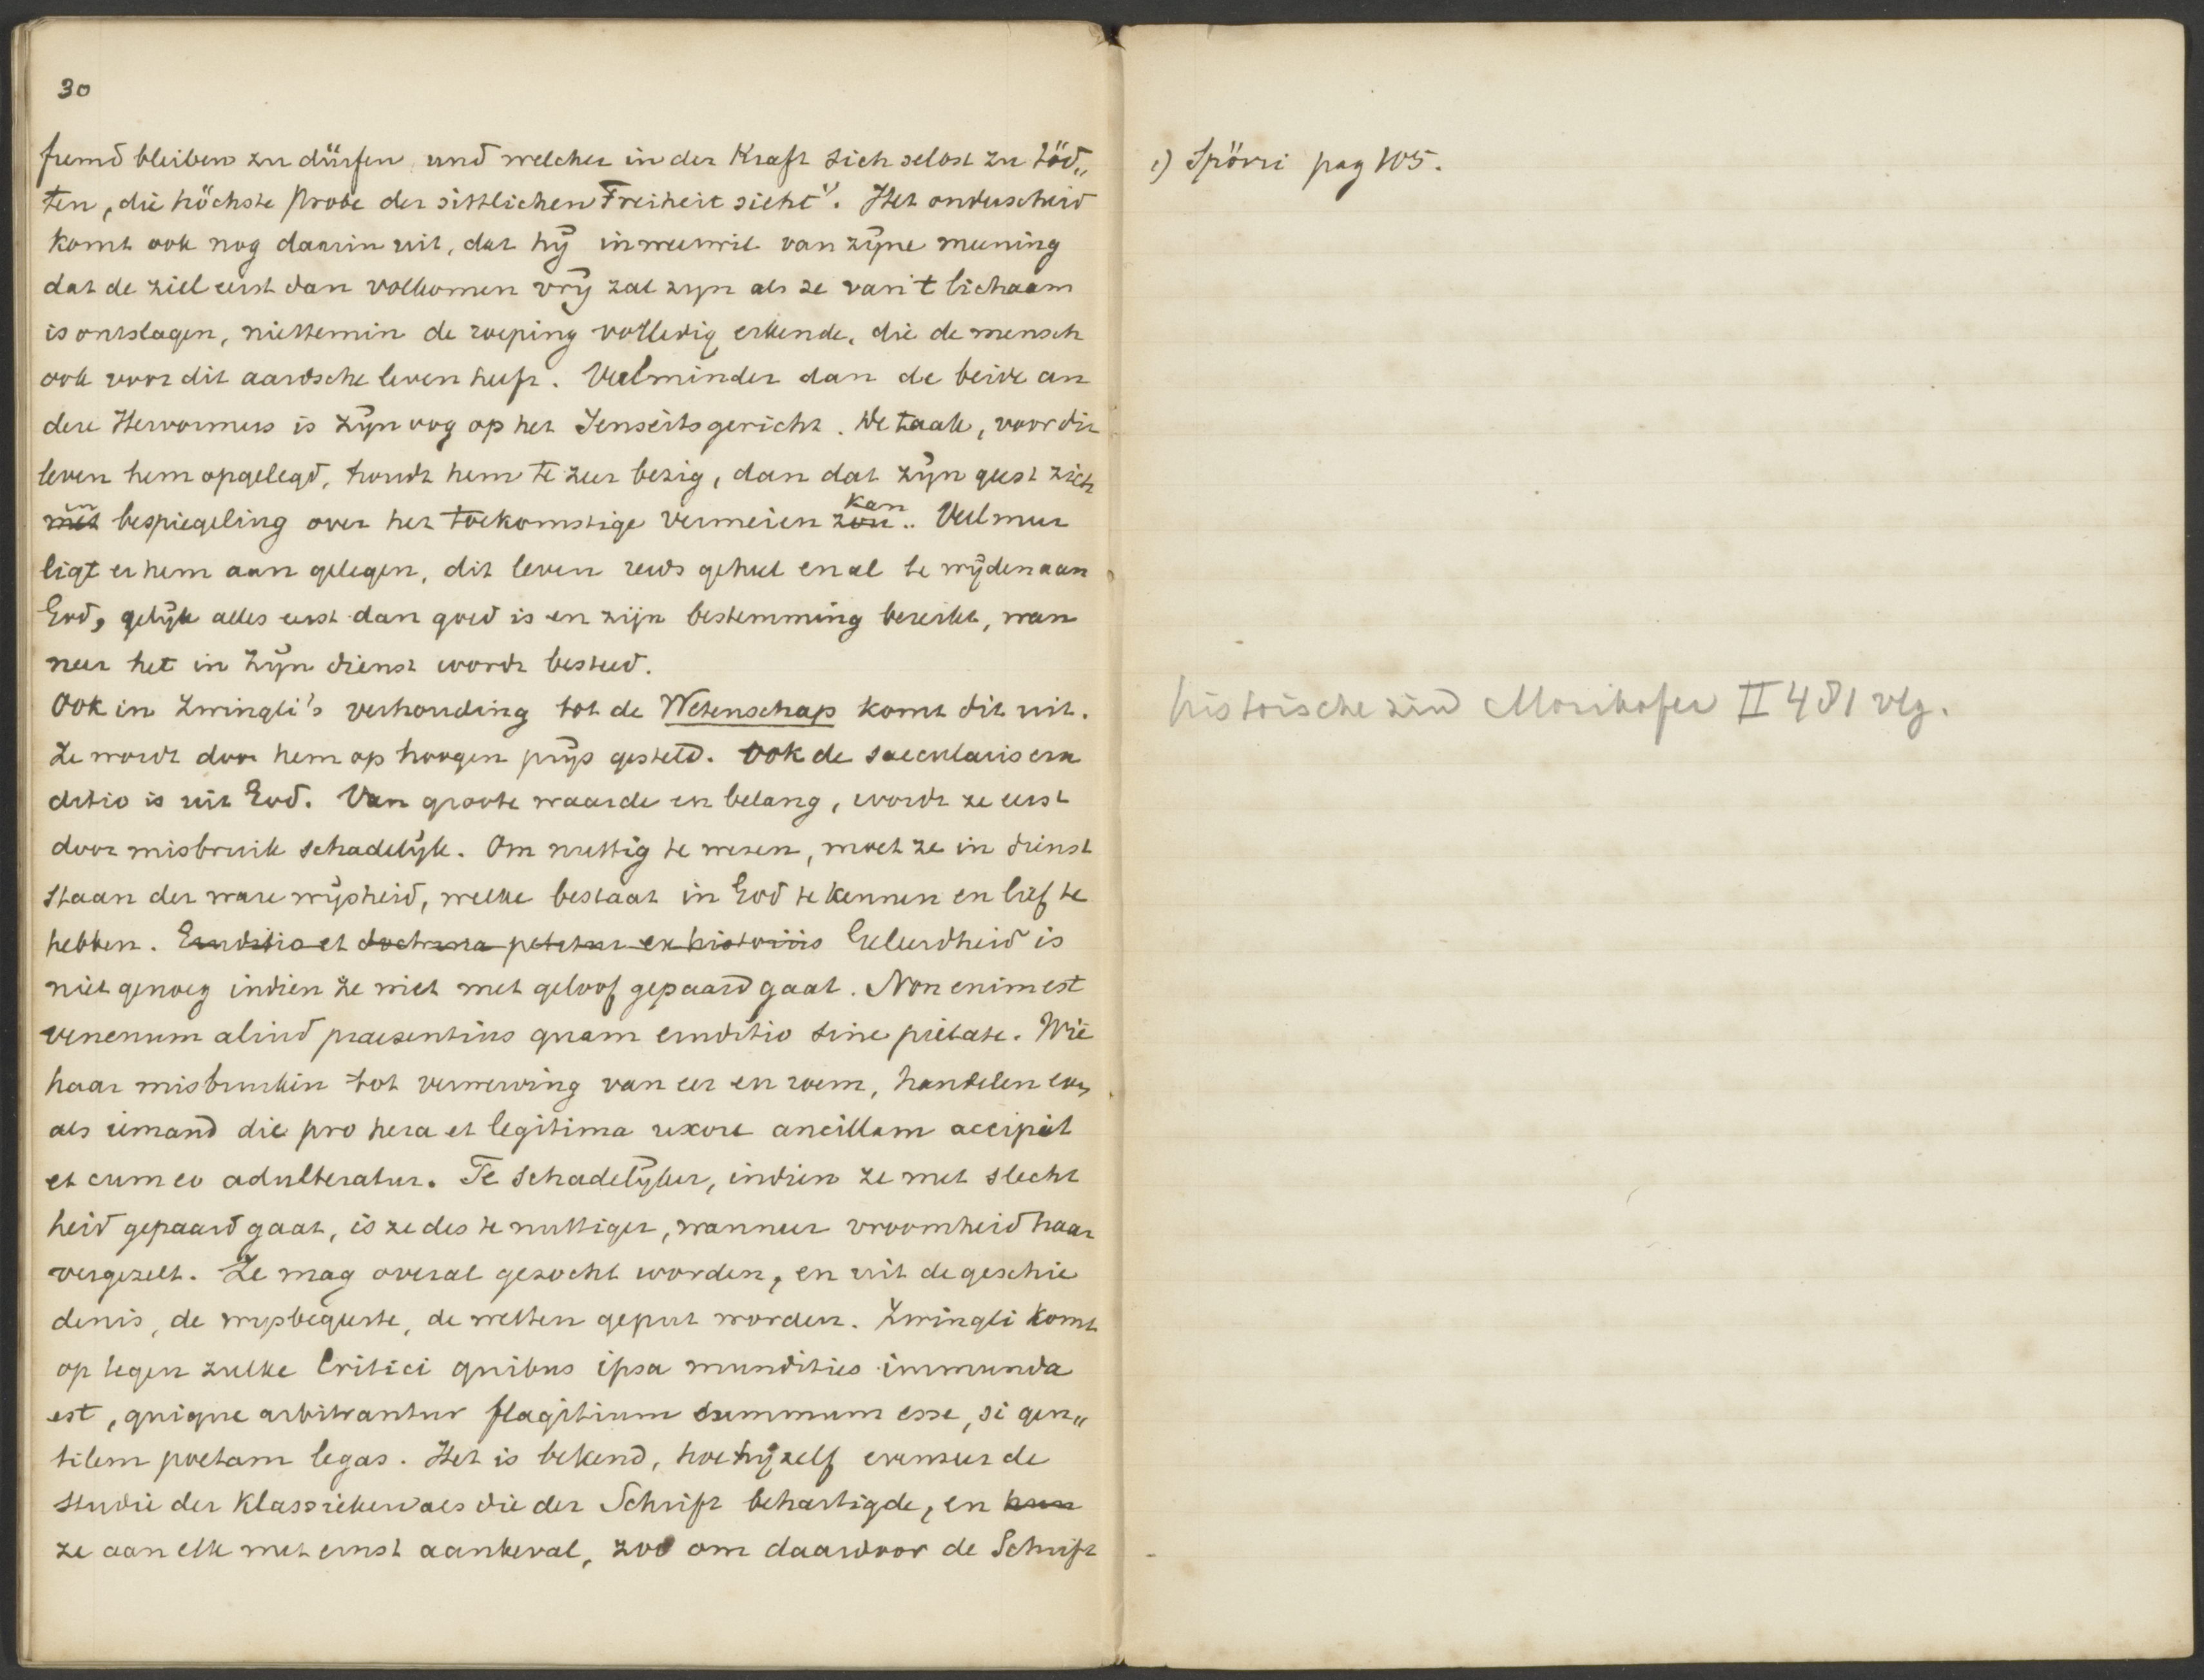 30
fremd bleiben zu dürfen, und welcher in der Kraft sich selbst zu töd„
ten, die höchste Probe der sittlichen Freiheit sieht¹⁾. Het onderscheid
komt ook nog daarin uit, dat hij in weerwil van zijne meening
dat de ziel eerst dan volkomen vrij zal zijn als ze van 't lichaam
is ontslagen, niettemin de roeping volledig erkende, die de mensch
ook voor dit aardsche leven heeft. Veel minder dan de beide an
dere Hervormers is zijn oog op het Jenseits gericht. De taak, voor dit
leven hem opgelegd, houdt hem te zeer bezig, dan dat zijn geest zich
in
kan
met bespiegeling over het toekomstige vermeien zou.. Veel meer
ligt er hem aan gelegen, dit leven reeds geheel en al te wijden aan
God, gelijk alles eerst dan goed is en zijn bestemming bereikt, wan
neer het in Zijn dienst wordt besteed.
Ook in Zwingli's verhouding tot de Wetenschap komt dit uit.
Ze wordt door hem op hoogen prijs gesteld. Ook de saecularis eru
ditio is uit God. Van groote waarde en belang, wordt ze eerst
door misbruik schadelijk. Om nuttig te wezen, moet ze in dienst
staan der ware wijsheid, welke bestaat in God te kennen en lief te
hebben. Eruditio et doctrina petetur ex historiis Geleerdheid is
niet genoeg indien ze niet met geloof gepaard gaat. Non enim est
venenum aliud praesentius quam eruditio sine pietate. Wie
haar misbruiken tot verwerving van eer en roem, handelen even
als iemand die pro hera et legitima uxore ancillam accipit
et cum eo adulteratur. Te schadelijker, indien ze met slecht
heid gepaard gaat, is ze des te nuttiger, wanneer vroomheid haar
vergezelt. Ze mag overal gezocht worden, en uit de geschie
denis, de wijsbegeerte, de wetten geput worden. Zwingli komt
op tegen zulke Critici quibus ipsa mundities immunda
est, quique arbitrantur flagitium summum esse, si gen„
tilem poetam legas. Het is bekend, hoe hij zelf evenzeer de
studie der Klassieken als die der Schrift behartigde, en hun
ze aan elk met ernst aanbeval, zoo om daardoor de Schrift
1) Spörri pag 105.
historische zin Morikofer II 481 vlg.